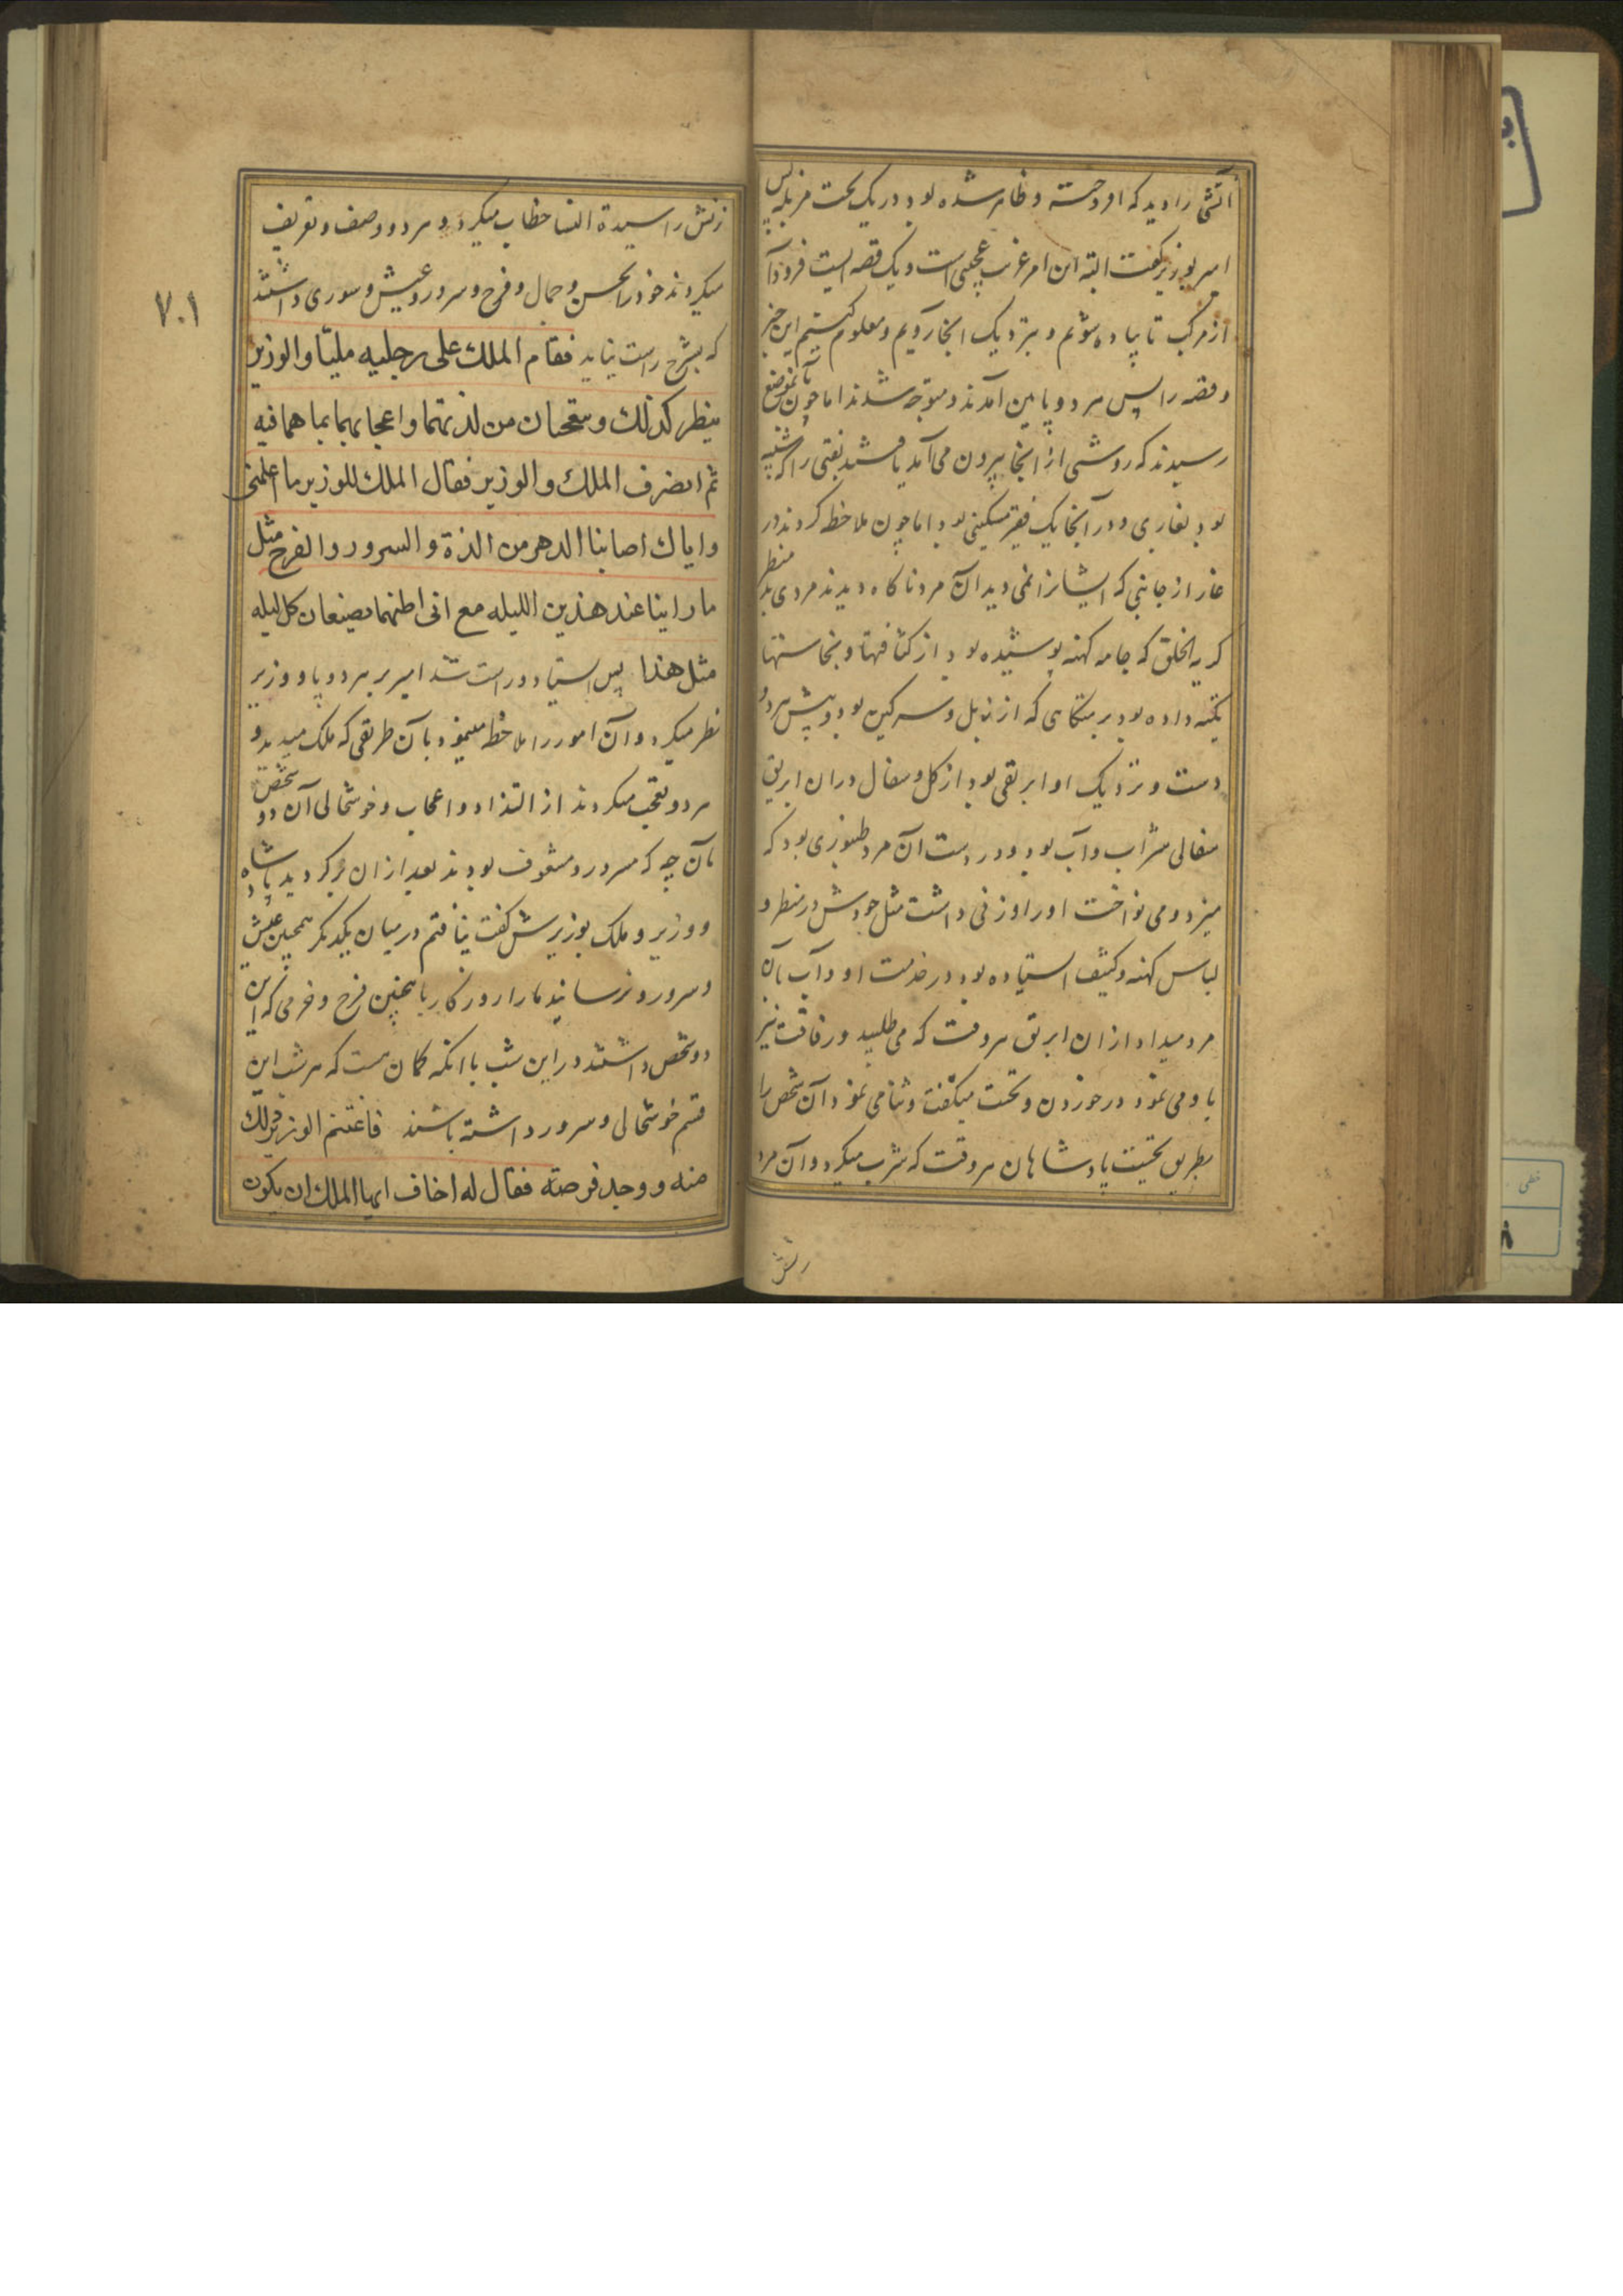 آتشی را دید که افروخته و ظاهر شده بود در یک تخت مزبله پس
امیر بوزیر گفت البته این امر غریب عجیبی است و یک قصه ایست فرود آ
از مرکب تا پیاده شویم و بنزدیک آنجا رویم و معلوم کنیم این خبر
و قصه را پس هر دو پایین آمدند و متوجه شدند اما چون بآنموضع
رسیدند که روشنی از آنجا بیرون می آمد یافتند نقبی را که شبیه
بود بغاری و در آنجا یک فقیر مسکینی بود اما چون ملاحظه کردند در
غار از جانبی که ایشانرا نمی دید آن مرد ناکاه دیدند مردی بد منظر
کریه الخلق که جامه کهنه پوشیده بود از کثافتها و نجاستها
تکیه داده بود بر متکایی که از زبل و سرکین بود و پیش هر دو
دست و نزدیک او ابریقی بود از کل و سفال دران ابریق
سفالی شراب و آب بود و در دست آن مرد طنبوری بود که
میزد و می نواخت او را و زنی داشت مثل خودش در منظر و
لباس کهنه و کثیف استاده بود در خدمت او و آب بآن
مرد میداد از ان ابریق هر وقت که می طلبید و رفاقت نیز
با و می نمود در خوردن و تحیت میکفت و ثنا می نمود آن شخص را
بطریق تحیت پادشاهان هر وقت که شرب میکرد و آن مرد
زنش
زنش را سیدة النسا خطاب میکرد و هر دو وصف و تعریف
میکردند خود را بحسن و جمال و فرح و سرور و عیش و سوری داشتند
۷۰۱
که بشرح راست نیاید فقام الملك علی رجلیه ملیّا والوزیر
ینظر کذلك ویتعجبان من لذتهما واعجابهما بما هما فیه
ثم انصرف الملك والوزیر فقال الملك للوزیر ما اعلمنی
وایاك اصابنا الدهر من الذة والسرور والفرح مثل
ما راینا عند هذین اللیله مع انی اظنهما یصنعان کل لیله
مثل هذا پس استاد و راست شد امیر بر هر دو پا و وزیر
نظر میکرد و آن امور را ملاحظه مینمود بآن طریقی که ملک میدید و
هر دو تعجب میکردند از التذاد و اعجاب و خوشحالی آن دو شخص
بآن چه که مسرور و مشعوف بودند بعد از ان برکردید پادشاه
و وزیر و ملک بوزیرش کفت نیافتم در میان یکدیکر همچنین عیش
و سرور و نرسانید ما را روزکار باینچنین فرح و خرمی که این
دو شخص داشتند در این شب با انکه کمان هست که هر شب این
قسم خوشحالی و سرور داشته باشند فاغتنم الوزیر ذلك
منه و وجد فرصة فقال له اخاف ایها الملك ان یکون
خفی